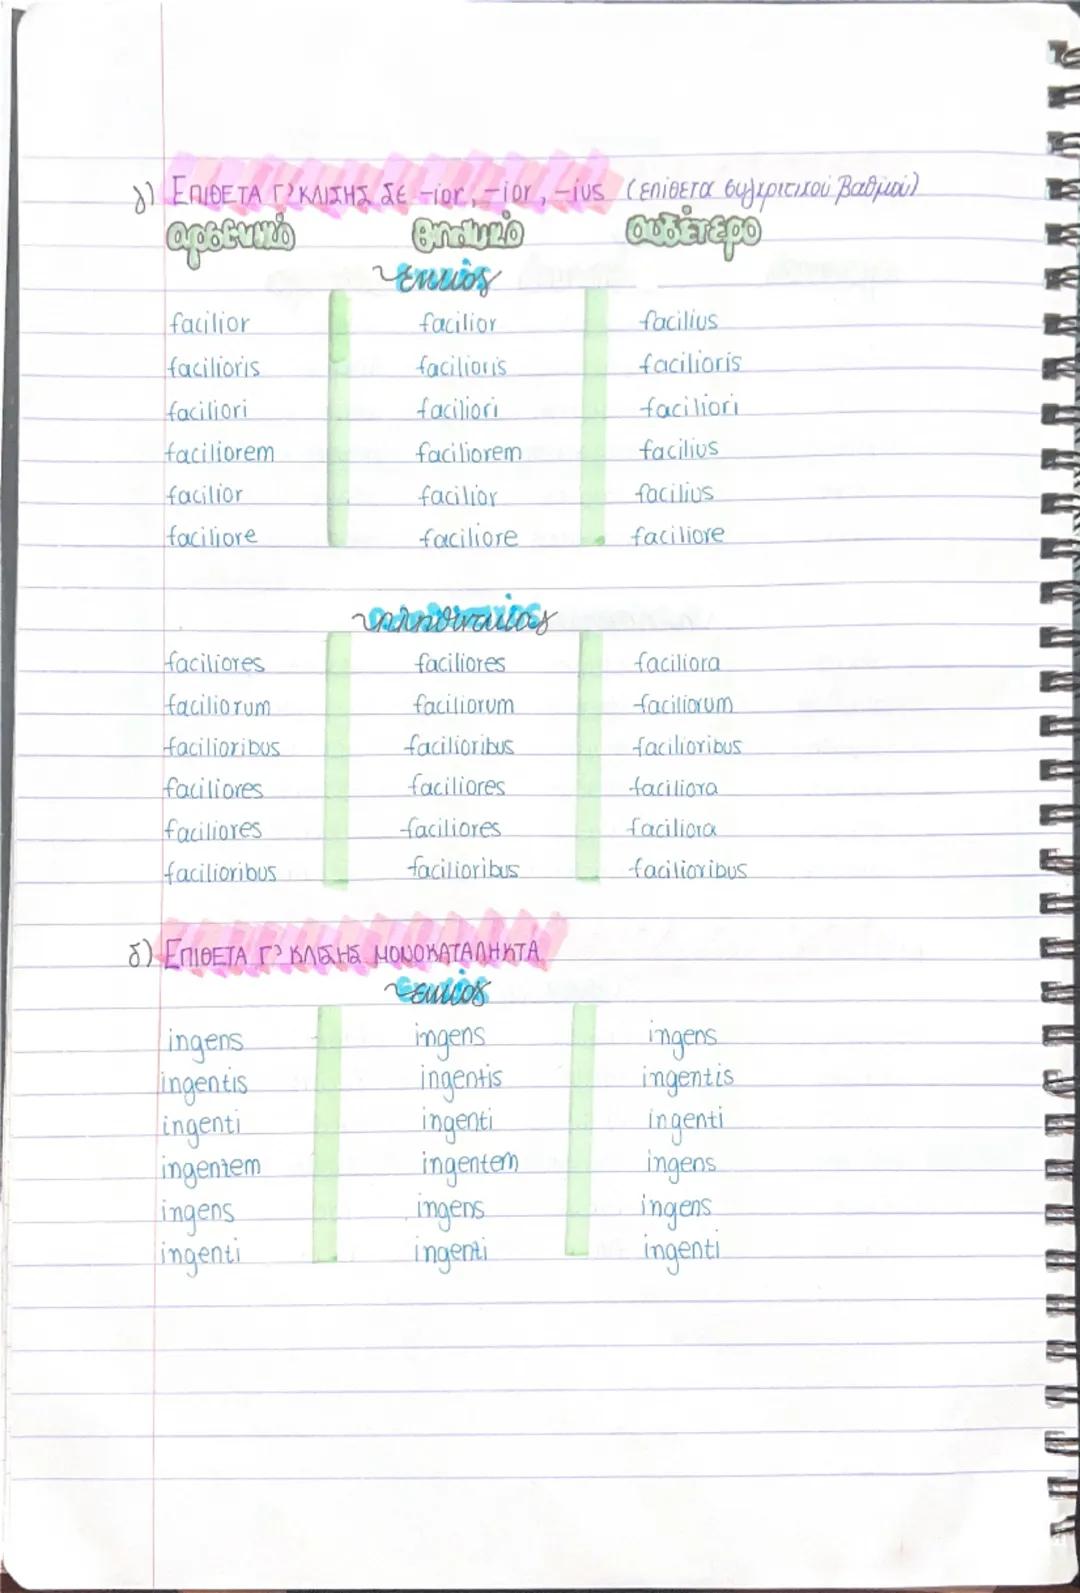 γ) ΕΠΙΘΕΤΑ Γ' ΚΛΙΣΗΣ ΣΕ -ior, -ior, -ius (επίθετα συγκριτικού βαθμού)
αρσενικό θηλυκό ουδέτερο
~Ενικός
facilior facilior facilius
facilioris facilioris facilioris
faciliori faciliori faciliori
faciliorem faciliorem facilius
facilior facilior facilius
faciliore faciliore faciliore
~πληθυντικός
faciliores faciliores faciliora
faciliorum faciliorum faciliorum
facilioribus facilioribus facilioribus
faciliores faciliores faciliora
faciliores faciliores faciliora
facilioribus facilioribus facilioribus
δ) ΕΠΙΘΕΤΑ Γ' ΚΛΙΣΗΣ ΜΟΝΟΚΑΤΑΛΗΚΤΑ
~Ενικός
ingens ingens ingens
ingentis ingentis ingentis
ingenti ingenti ingenti
ingentem ingentem ingens
ingens ingens ingens
ingenti ingenti ingenti